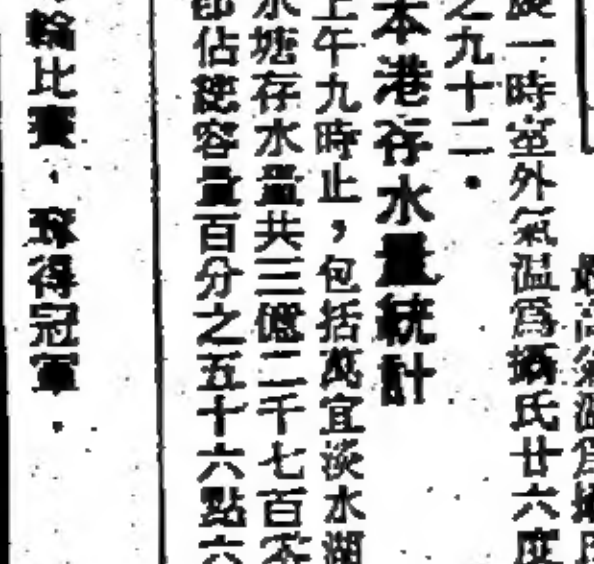 最高氣溫爲攝氏
度一時室外氣溫爲攝氏廿六度
之九十二．
本港存水量統計
上午九時止，包括萬宜淡水湖
水塘存水量共三億二千七百零
卽佔總容量百分之五十六點六
輪比賽．奪得冠軍．